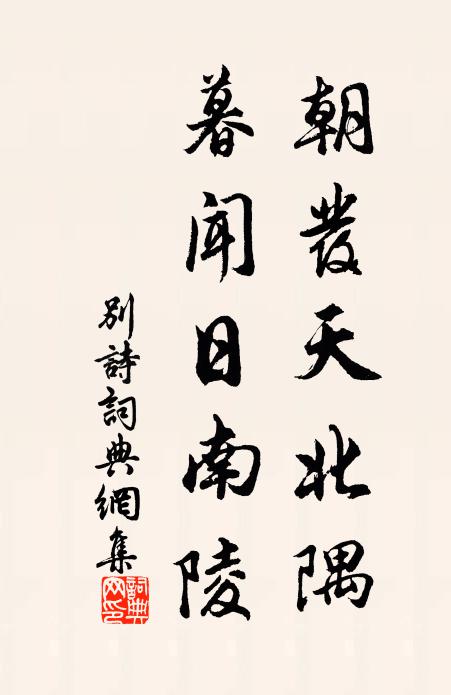 朝發天北隅
暮聞日南陵
別詩詞典網集
詞典
网印